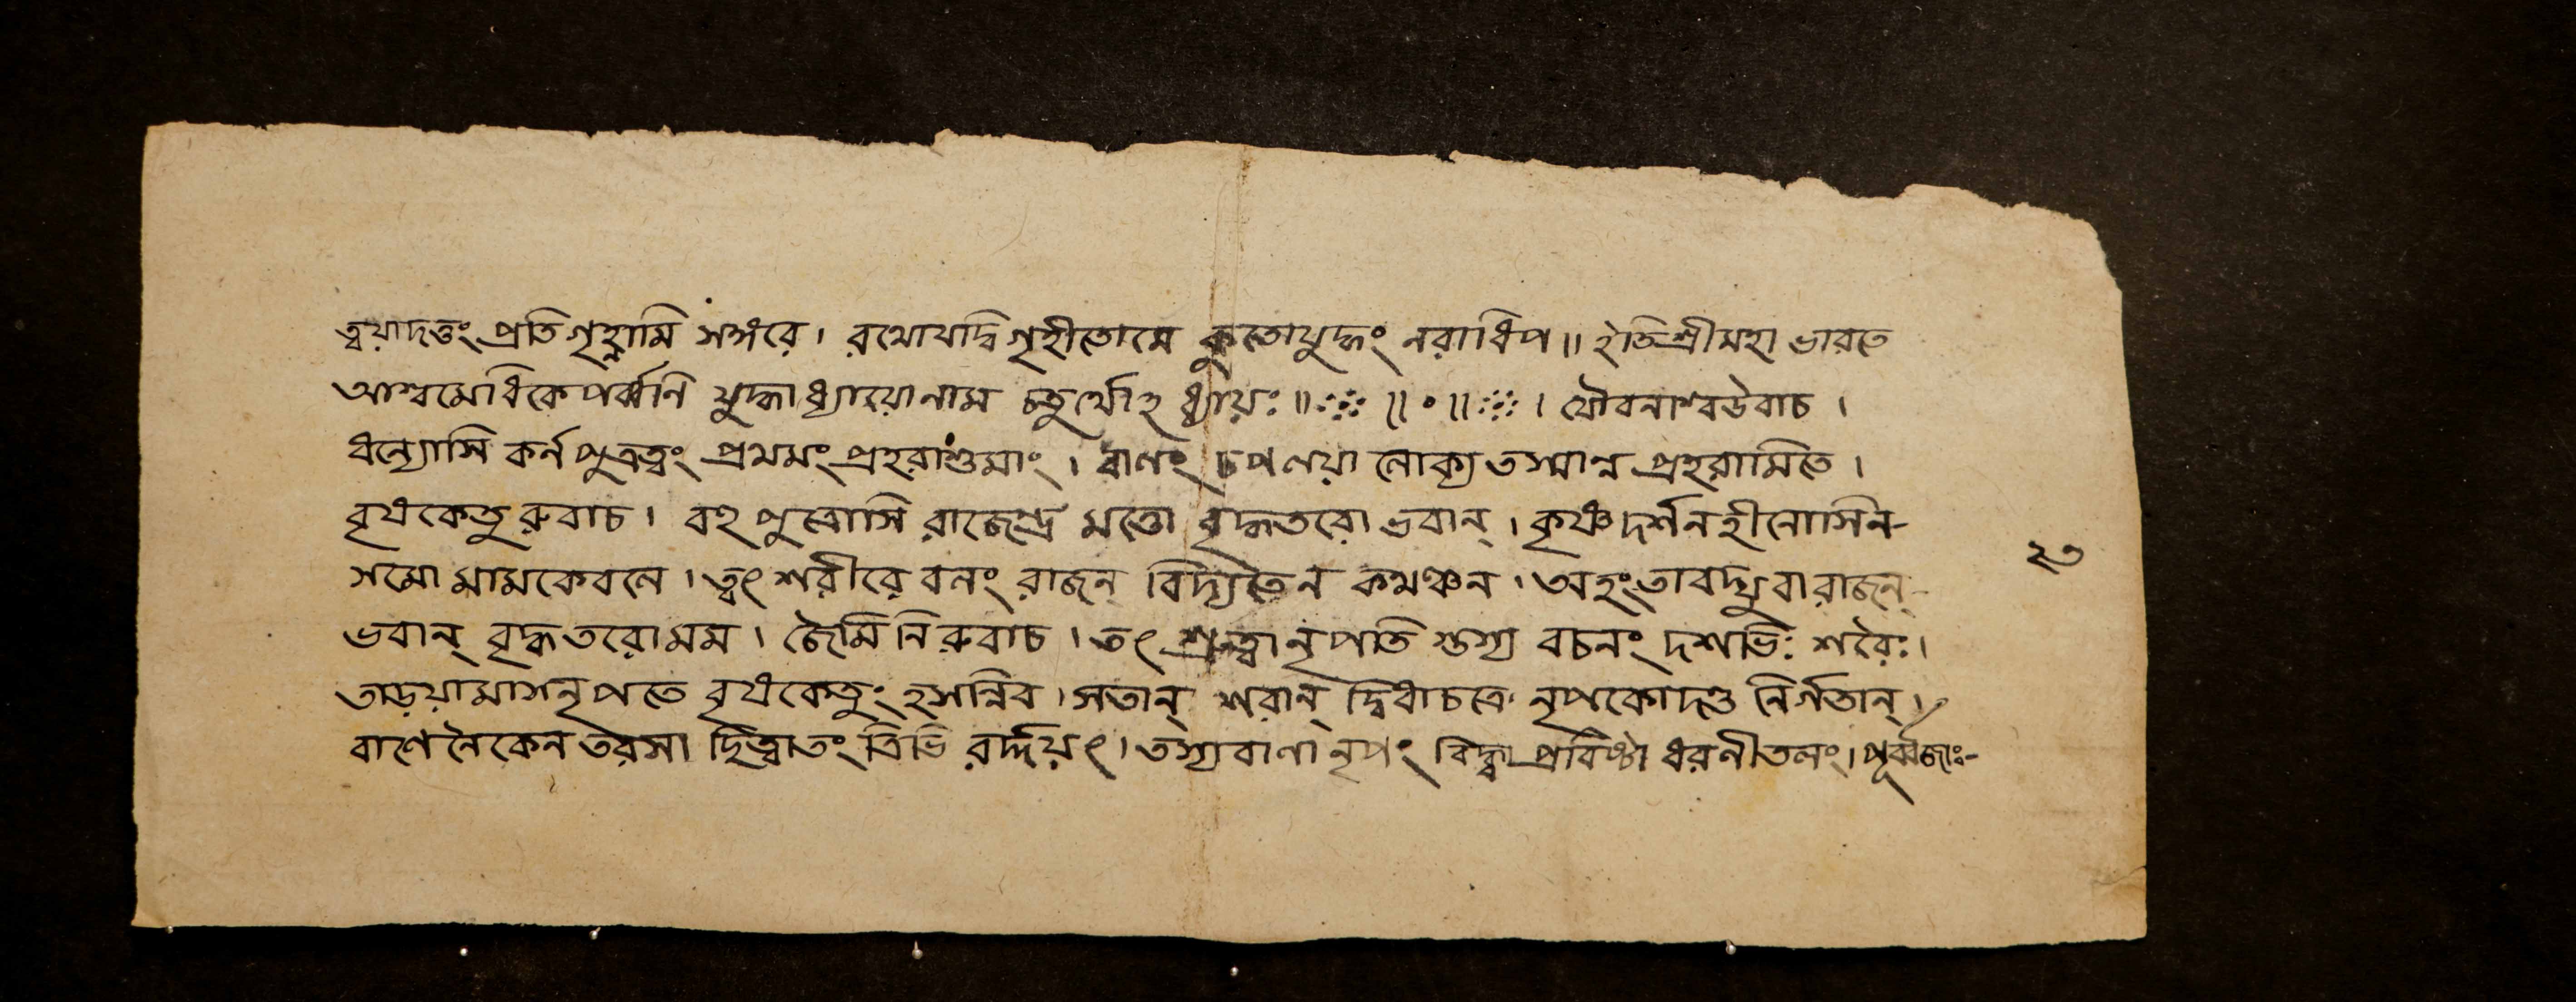 ত্বয়াদত্তং প্রতিগৃহ্ণামি সঙ্গরে। রথোযদ্বিগৃহীতোমে কুতোযুদ্ধং নরাধিপ॥ ইতিশ্রীমহাভারতে
আশ্বমেধিকেপর্ব্বনি যুদ্ধাধ্যায়োনাম চতুর্থোঽধ্যায়ঃ॥ ॥৹॥ । যৌবনাশ্বউবাচ।
ধন্যোসি কর্নপুত্রত্বং প্রথমং প্রহরাশুমাং। বাণং নোক্য তস্মান্ন প্রহরামিতে।
বৃষকেতুরুবাচ। বহুপুত্রোসি রাজেন্দ্র মত্তো বৃদ্ধতরো ভবান্। কৃষ্ণদর্শনহীনোসিন-
সমো মামকেবনে। ত্বৎশরীরে বনং রাজন্ বিদ্যতৈন কথঞ্চন। অহংতাবদ্যুবারাজন্-
ভবান্ বৃদ্ধতরোমম। জৈমিনিরুবাচ। তৎশ্রুত্বানৃপতিস্তস্য বচনং দশভিঃ শরৈঃ।
তাড়য়ামাসনৃপতে বৃষকেতুং হসন্নিব। সতান্ শরান্ দ্বিধাচক্রে নৃপকোদণ্ড নির্গতান্।
বাণেনৈকেন তরসা ছিত্বাতং ত্রিভিরর্দ্দয়ৎ। তস্যবাণা নৃপং বিদ্ধ্বা প্রবিষ্টা ধরনীতলং। পূর্ব্বজাঃ-
২৩